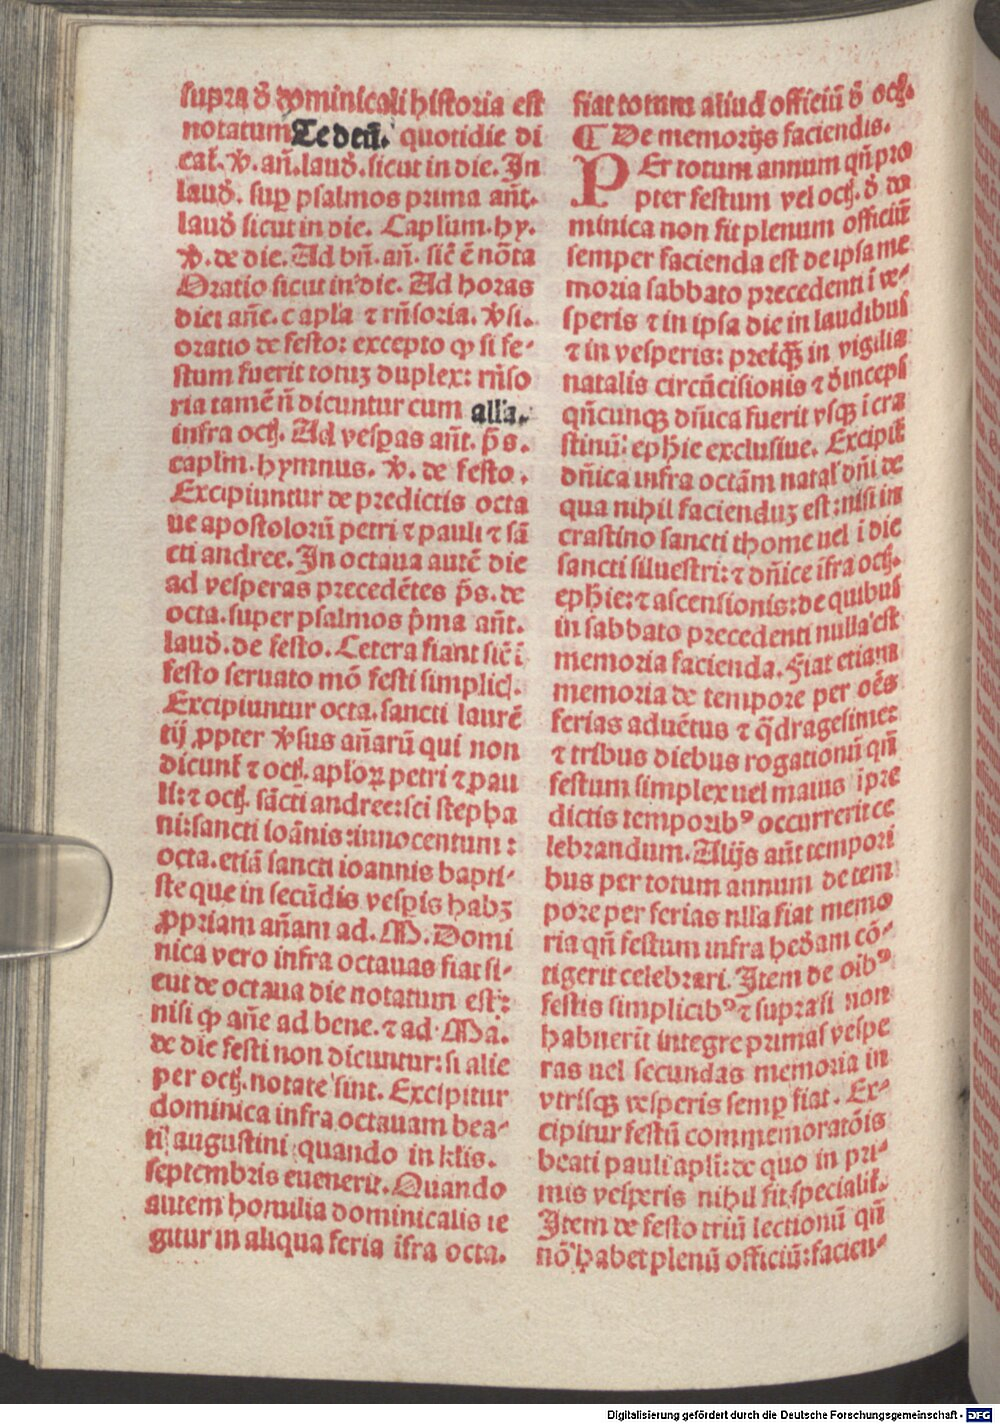 supra đ dominicali historia est
notatum Te deū. quotidie di
cať. ꝟ. añ. lauđ. sicut in die. In
lauđ. suꝑ psalmos prima añt.
lauđ sicut in die. Caplum. hy.
ꝟ. de die. Ad bñ. añ. sic̄ ē nōta
Oratio sicut in die. Ad horas
diei añe. capla ⁊ rñsoria. ꝟsi.
oratio de festo: excepto ꝙ si fe-
stum fuerit totuꝫ duplex: rñso
ria tamē ñ dicuntur cum alľa.
infra oct̄. Ad vesꝑas añt. p̄s.
caplm. hymnus. ꝟ. de festo.
Excipiuntur de predictis octa
ue apostolorū petri ⁊ pauli ⁊ sā
cti andree. In octaua autē die
ad vesperas precedētes p̄s. de
octa. super psalmos p̄ma añt.
lauđ. de festo. Cetera fiant sic̄ ī
festo seruato mō festi simplic̄.
Excipiuntur octa. sancti laurē
tij ꝓpter ꝟsus añarū qui non
dicunť ⁊ oct̄. apľoꝝ petri ⁊ pau
li: ⁊ oct̄. sācti andree: sci stepha
ni: sancti ioānis: innocentum:
octa. etiā sancti ioannis bapti-
ste que in secūdis vesꝑis habꝫ
ꝓpriam añam ad. M. Domi
nica vero infra octauas fiat si-
cut de octaua die notatum est:
nisi ꝙ añe ad bene. ⁊ ad Ma.
de die festi non dicuntur: si alie
per oct̄. notate sint. Excipitur
dominica infra octauam bea-
ti augustini quando in klis.
septembris euenerit. Quando
autem homilia dominicalis le
gitur in aliqua feria īfra octa.
fiat totum aliud officiū đ oct̄.
¶ De memorijs faciendis.
PEr totum annum qñ pro
pter festum vel oct̄. đ do
minica non fit plenum officiū
semper facienda est de ipsa me
moria sabbato precedenti ī ve-
speris ⁊ in ipsa die in laudibus
⁊ in vesperis: preterqꝫ in vigilia
natalis circūcisionis ⁊ đinceps
qñcunqꝫ dñica fuerit vsqꝫ ī cra
stinū: epħie exclusiue. Excipiť
dñica infra octām natal dñi de
qua nihil facienduꝫ est: nisi in
crastino sancti thome uel ī die
sancti siluestri: ⁊ dñice īfra oct̄.
epħie: ⁊ ascensionis: de quibus
in sabbato precedenti nulla est
memoria facienda. Fiat etiam
memoria de tempore per oēs
ferias aduētus ⁊ q̄dragesime:
⁊ tribus diebus rogationū qñ
festum simplex uel maius īpre
dictis temporibꝰ occurrerit ce
lebrandum. Alijs aūt tempori
bus per totum annum de tem
pore per ferias nlla fiat memo
ria qñ festum infra heđam cō-
tigerit celebrari. Item de oībꝰ
festis simplicibꝰ ⁊ supra si non
habuerīt integre primas vespe
ras uel secundas memoria in
vtrisqꝫ vesperis semꝑ fiat. Ex-
cipitur festū commemoratōis
beati pauli apľi: de quo in pri-
mis vesperis nihil fit specialiť.
Item de festo triū lectionū qñ
nō habet plenū officiū: facien-
Digitalisierung gefördert durch die Deutsche Forschungsgemeinschaft - DFG